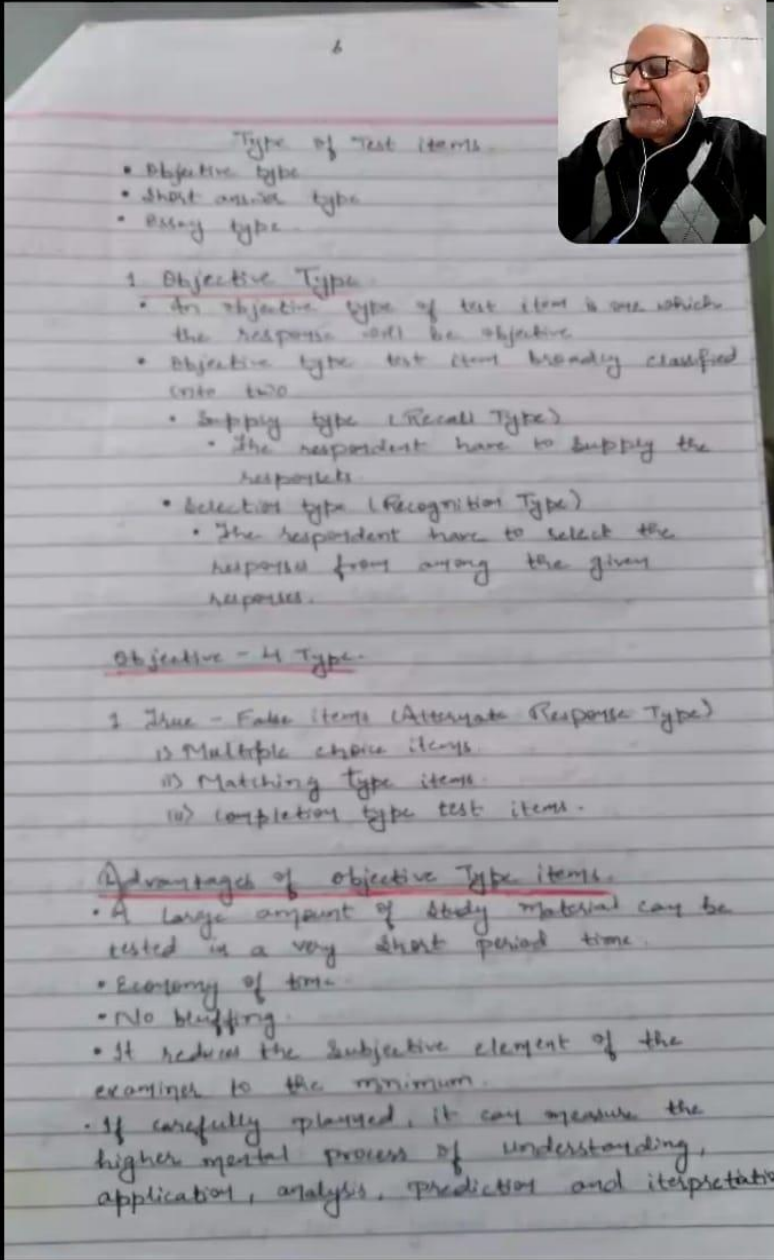 6
Type of Test items.
• Objective type
• Short answer type
• Essay type.
1. Objective Type
• An objective type of test item is one which
the response will be objective
• Objective type test item broadly classified
into two
• Supply type (Recall Type)
• The respondent have to supply the
• Selection type (Recognition Type)
• The respondent have to select the
responses from among the given
responses.
Objective - 4 Type.
1 True - False items (Alternate Response Type)
i) Multiple choice items
ii) Matching type items.
iii) Completion type test items.
Advantages of objective Type items.
• A large amount of study material can be
tested in a very short period time.
• Economy of time.
• No bluffing.
• It reduces the subjective element of the
examiner to the mnimum.
• If carefully planned, it can measure the
higher mental process of understanding,
application, analysis, prediction and iterpretatio